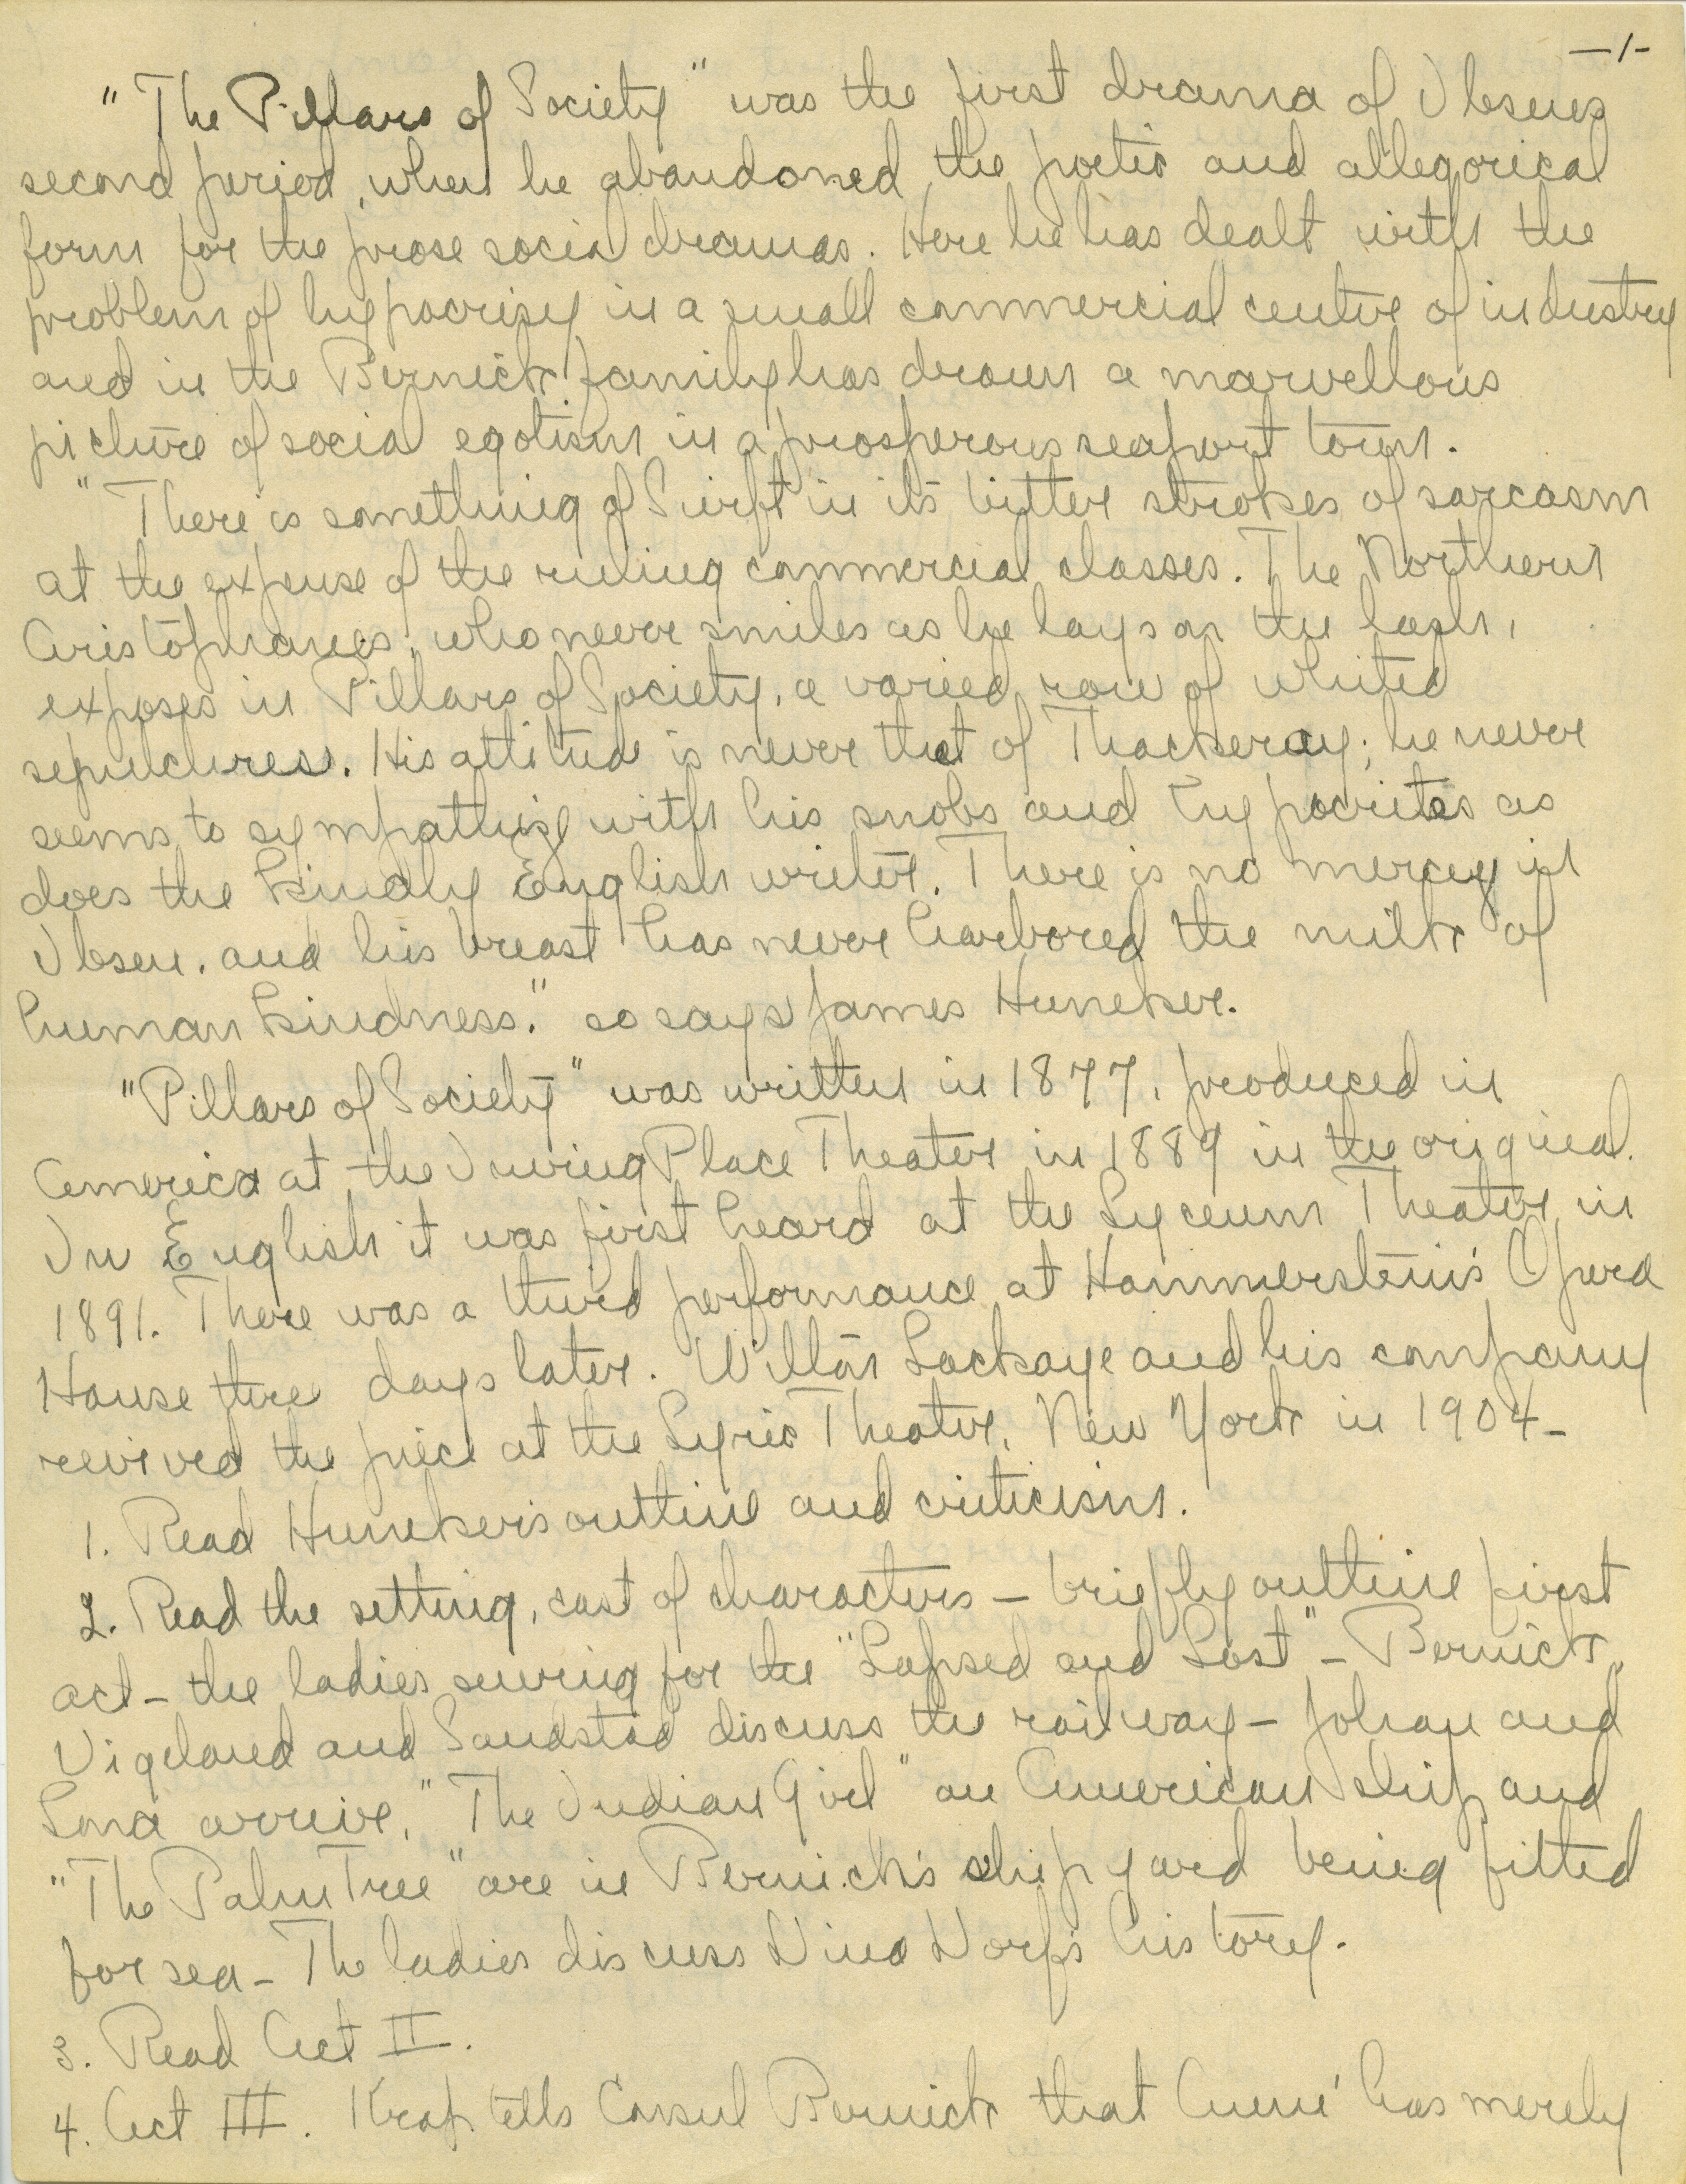 -1-
"The Pillars of Society" was the first drama of Ibsen's
second period, when he abandoned the poetic and allegorical
form for the prose social dramas. Here he has dealt with the
problem of hypocrisy in a small commercial centre of industry
and in the Bernick family has drawn a marvellous
picture of social egotism in a prosperous seaport town.
"There is something of Swift in its bitter strokes of sarcasm
at the expense of the ruling commercial classes. The Northern
Aristophanes, who never smiles as he lays on the lash,
exposes in Pillars of Society, a varied row of whited
sepulchres. His attitude is never that of Thackeray; he never
seems to sympathize with his snobs and hypocrites as
does the kindly English writer. There is no mercy in
Ibsen, and his breast has never harbored the milk of
human kindness." so says James Huneker.
"Pillars of Society" was written in 1877, produced in
America at the Irving Place Theater in 1889 in the original.
In English it was first heard at the Lyceum Theater in
1891. There was a third performance at Hammerstein's Opera
House three days later. Wilton Lackaye and his company
revived the piece at the Lyric Theater, New York in 1904-
1. Read Huneker's outline and criticism.
2. Read the setting, cast of characters - briefly outline first
act - the ladies sewing for the "Lapsed and Lost" - Bernick,
Vigeland and Sandstad discuss the railway - Johan and
Lona arrive, "The Indian Girl" an American ship and
"The Palm Tree" are in Bernick's ship yard being fitted
for sea - The ladies discuss Dina Dorf's history.
3. Read Act II.
4. Act III. Krap tells Consul Bernick that Aune has merely